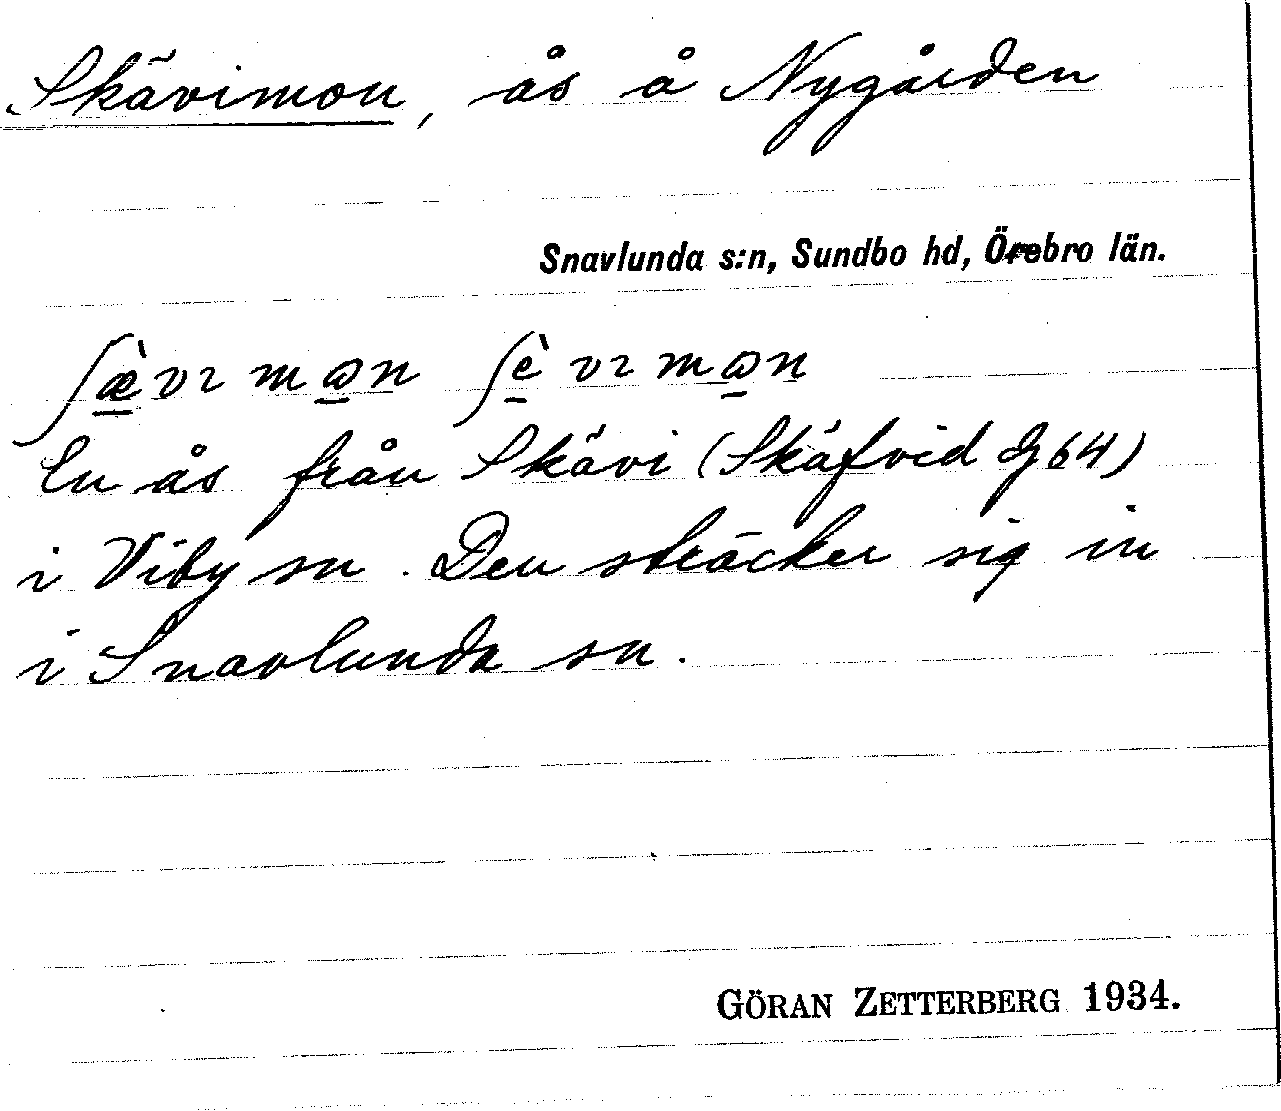 Skävimon, ås å Nygården
Snavlunda s:n, Sundbo hd, Örebro län.
ʃæ̀vɩmɷn ʃèvɩmɷn
En ås från Skävi (Skäfvid G64)
i Viby sn. Den sträcker sig in
i Snavlunda sn.
GÖRAN ZETTERBERG 1934.